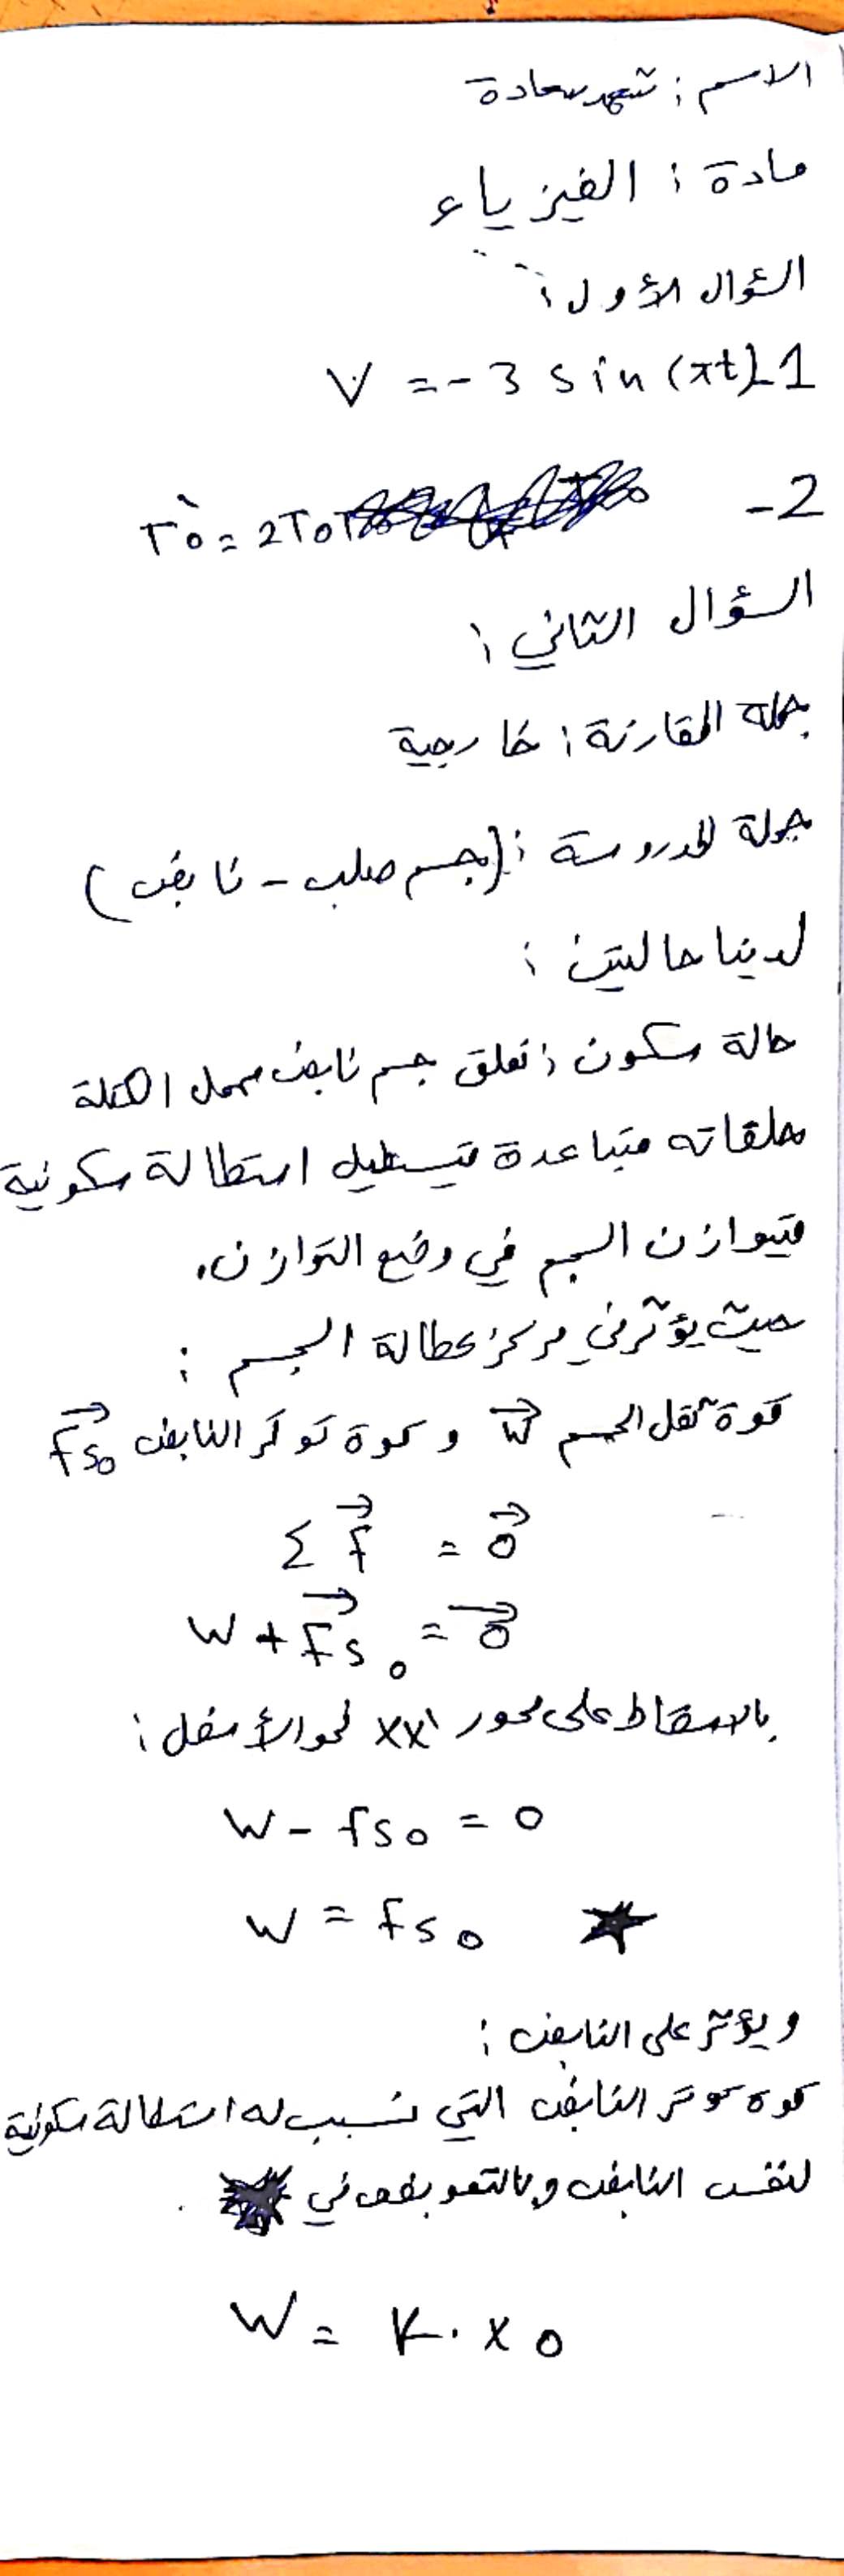 الاسم : شهد سعادة
مادة : الفيزياء
السؤال الأول :
1- V = -3 sin (πt)
2- T'o = 2To
السؤال الثاني :
جملة المقارنة : خارجية
جملة المدروسة : (جسم صلب - نابض)
لدينا حالتين :
حالة سكون : نعلق جسم نابض مهمل الكتلة
حلقاته متباعدة فيستطيل استطالة سكونية
فيتوازن الجسم في وضع التوازن.
حيث يؤثر في مركز عطالة الجسم :
قوة ثقل الجسم W⃗ و قوة توتر النابض F⃗s₀
Σ F⃗ = 0⃗
W + F⃗s₀ = 0⃗
بالاسقاط على محور xx' نحو الأسفل :
W - fs₀ = 0
W = fs₀ ★
ويؤثر على النابض :
قوة توتر النابض التي تسبب له استطالة سكونية
لنفس النابض وبالتعويض في ★
W = K . x₀